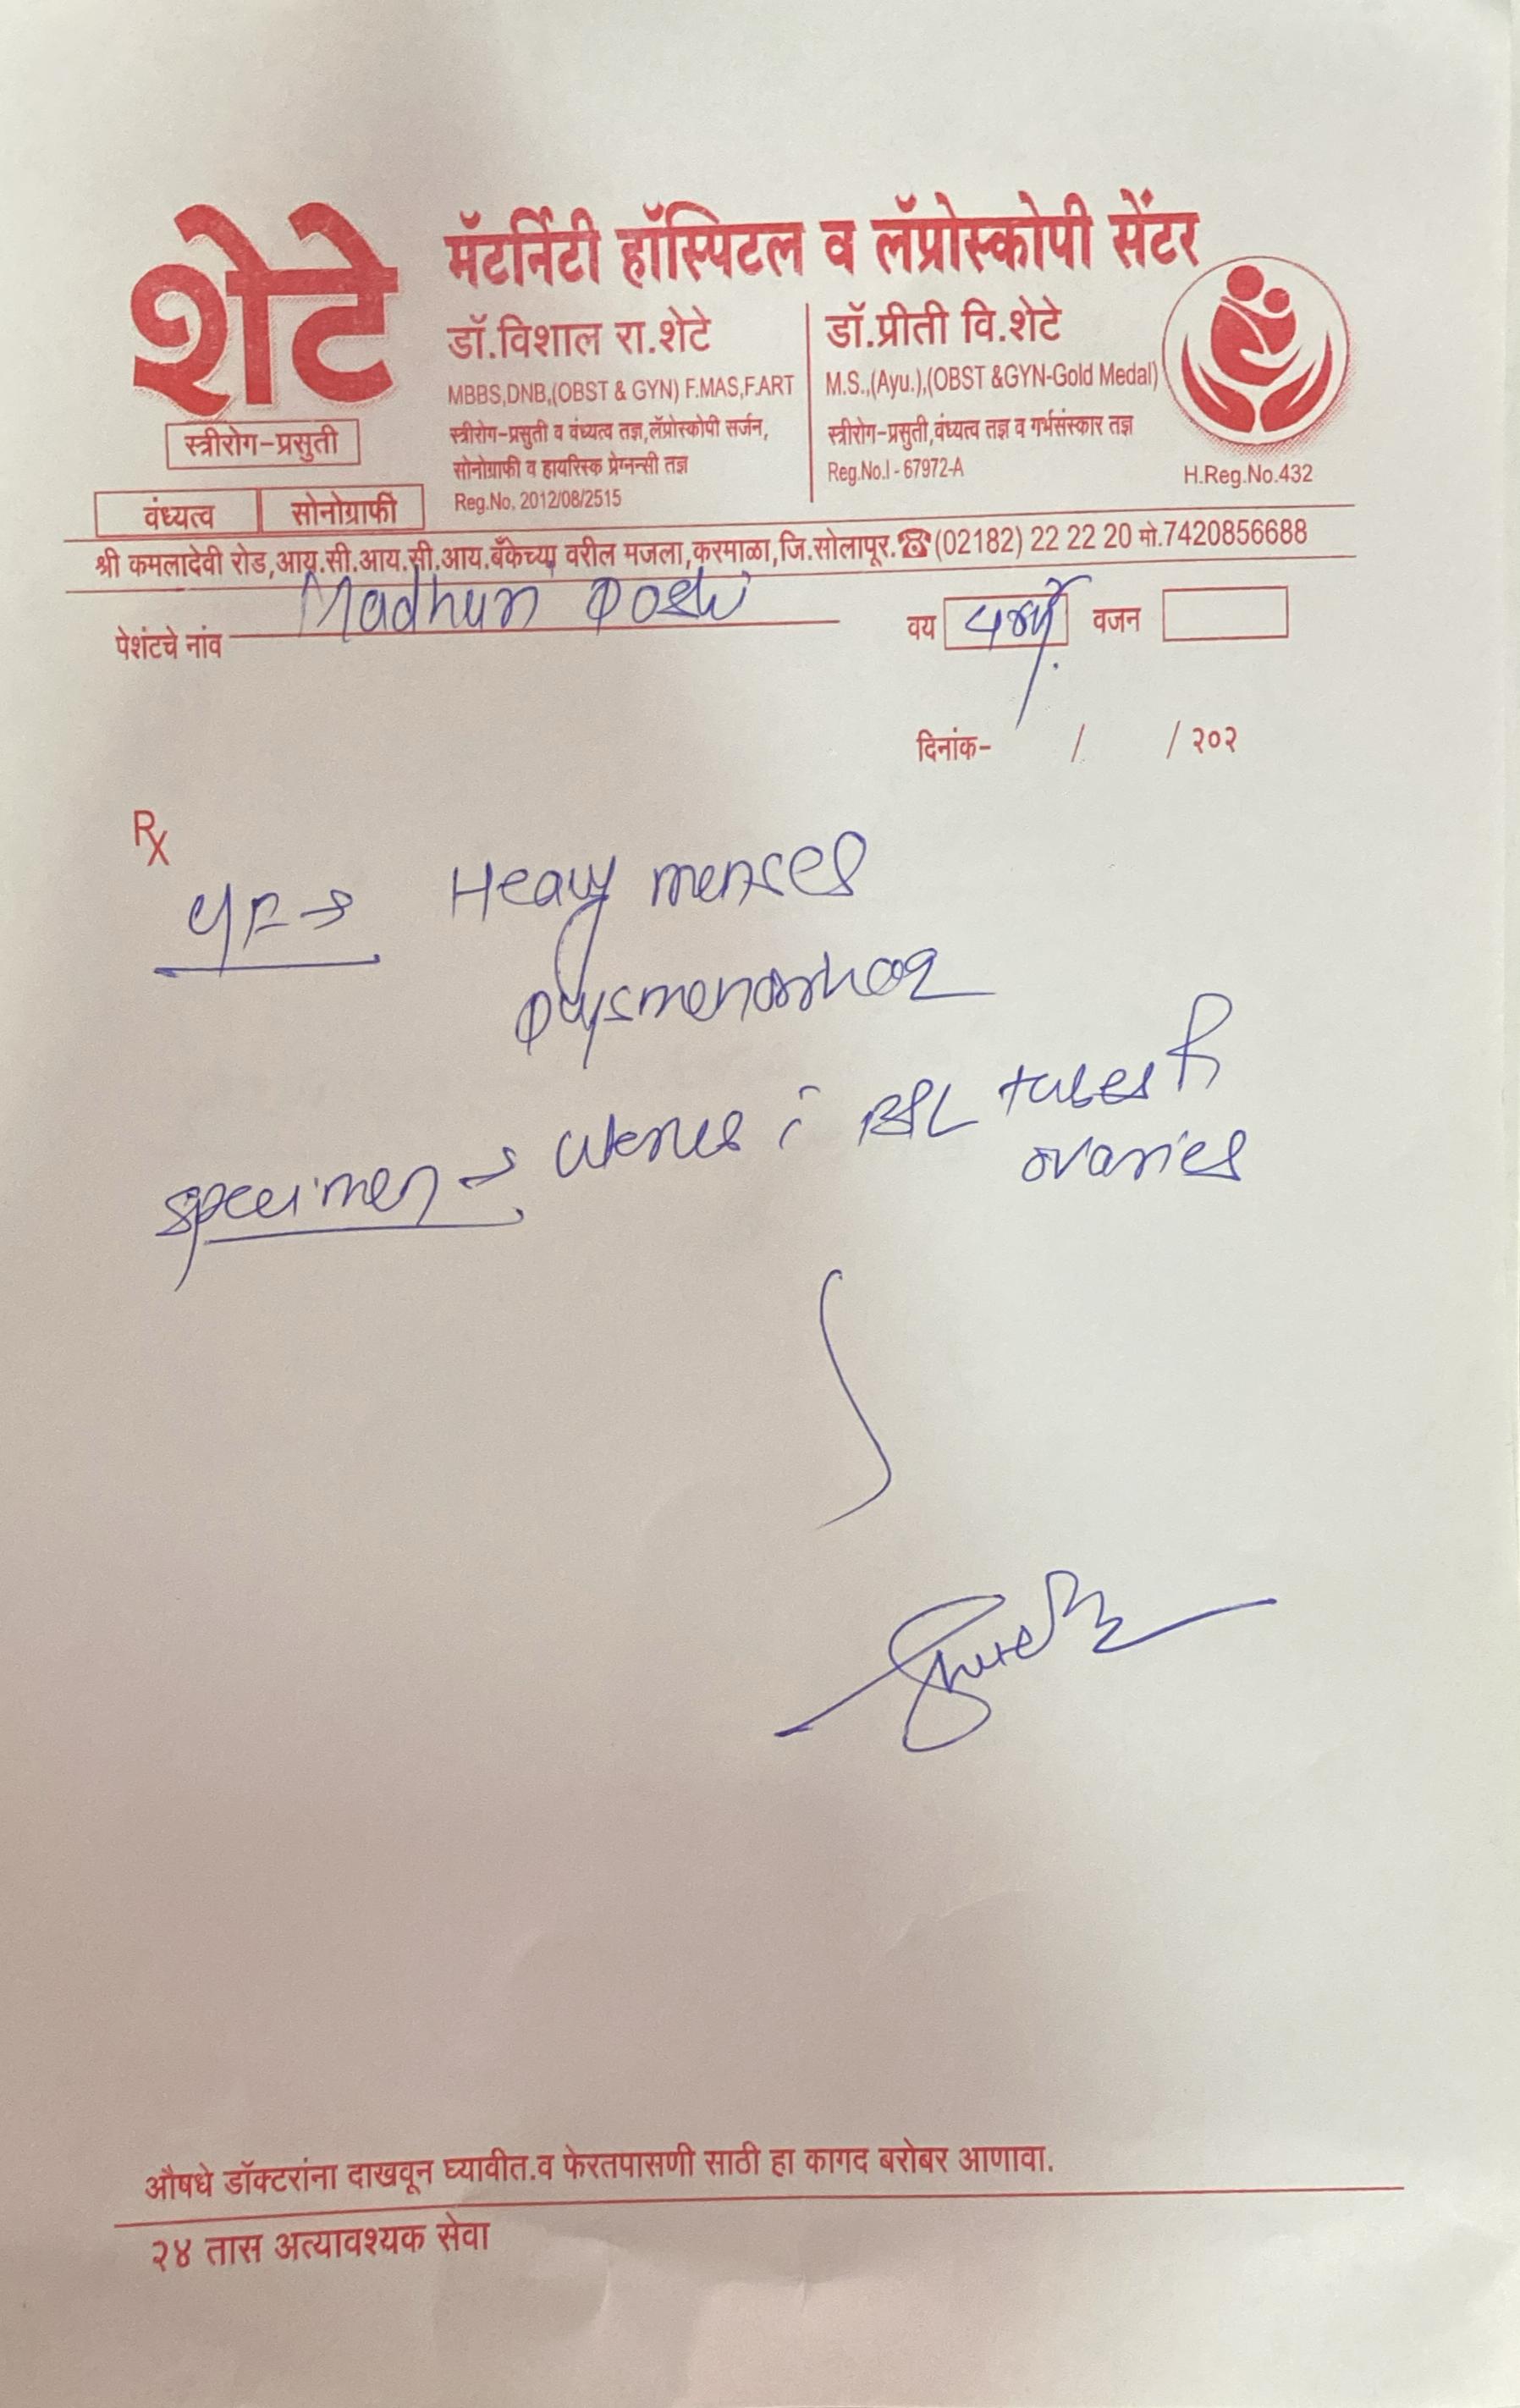 शेटे
मॅटर्निटी हॉस्पिटल व लॅप्रोस्कोपी सेंटर
डॉ.विशाल रा.शेटे
MBBS,DNB,(OBST & GYN) F.MAS,F.ART
स्त्रीरोग-प्रसुती व वंध्यत्व तज्ञ,लॅप्रोस्कोपी सर्जन,
सोनोग्राफी व हायरिस्क प्रेग्नन्सी तज्ञ
Reg.No. 2012/08/2515
डॉ.प्रीती वि.शेटे
M.S.,(Ayu.),(OBST &GYN-Gold Medal)
स्त्रीरोग-प्रसुती,वंध्यत्व तज्ञ व गर्भसंस्कार तज्ञ
Reg.No.I - 67972-A
H.Reg.No.432
स्त्रीरोग-प्रसुती
वंध्यत्व सोनोग्राफी
श्री कमलादेवी रोड,आय.सी.आय.सी.आय.बँकेच्या वरील मजला,करमाळा,जि.सोलापूर.☎(02182) 22 22 20 मो.7420856688
पेशंटचे नांव Madhuri Doshi वय वजन
दिनांक- / / २०२
Rx
Heavy menses
Dysmenorrhoea
specimen → uterus c̄ B/L tubes
ovaries
औषधे डॉक्टरांना दाखवून घ्यावीत.व फेरतपासणी साठी हा कागद बरोबर आणावा.
२४ तास अत्यावश्यक सेवा